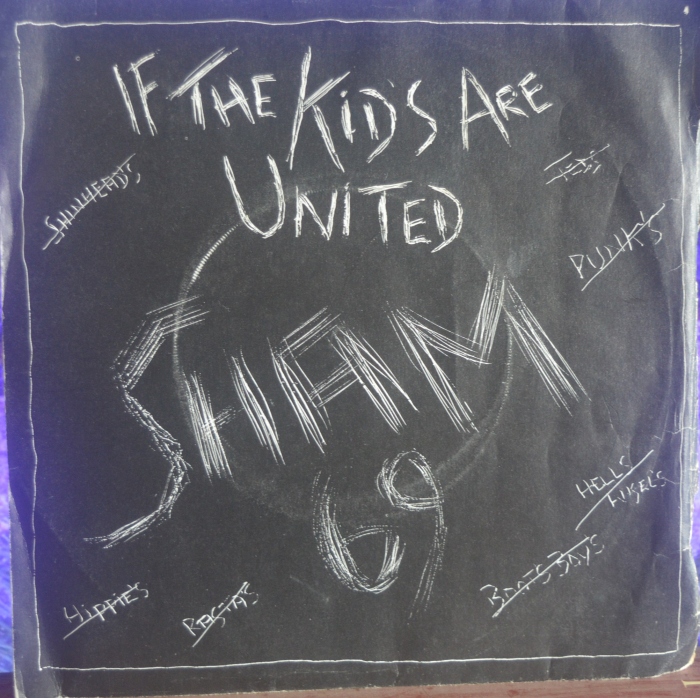 IF THE KID'S ARE
UNITED
SKINHEAD'S
TEDS
PUNK'S
SHAM
69
HELLS
ANGEL'S
BOOTS BOYS
HIPPIE'S
RASTA'S